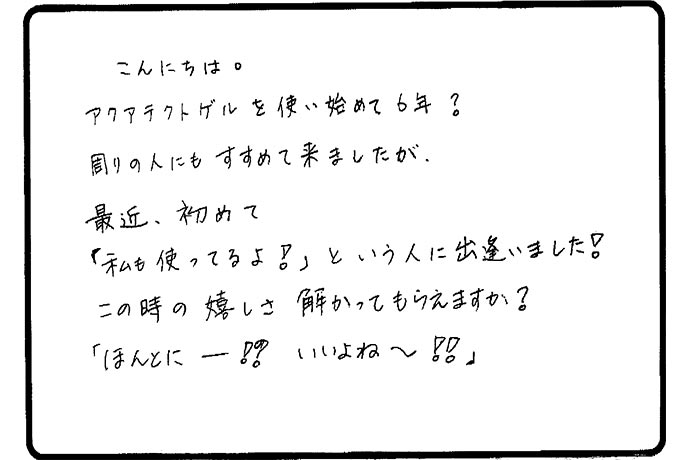 こんにちは。
アクアテクトゲルを使い始めて6年?
周りの人にもすすめて来ましたが、
最近、初めて
「私も使ってるよ!」という人に出逢いました!
この時の嬉しさ 解かってもらえますか?
「ほんとにー!?? いいよね〜!!」